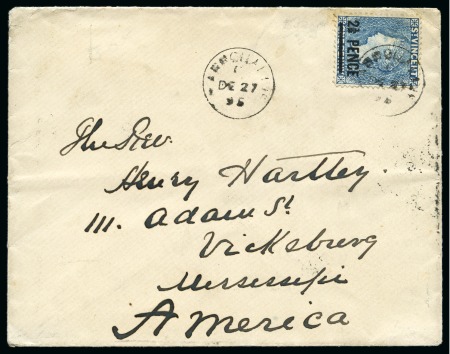 ST VINCENT
2½ PENCE
DE 27
95
The Rev.
Henry Hartley.
111. Adam St
Vicksburg
Messessepi
America